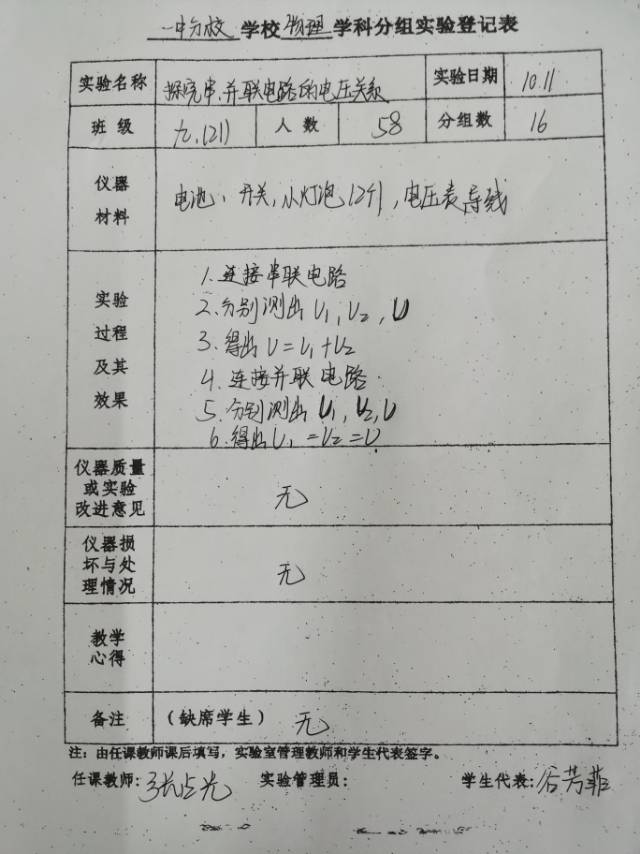 一中分校 学校 物理 学科分组实验登记表
实验名称 探究串、并联电路的电压关系 实验日期 10.11
班 级 九.(21) 人 数 58 分组数 16
仪器
材料
电池、开关,小灯泡(2个),电压表 导线
实验
过程
及其
效果
1.连接串联电路
2.分别测出U₁,U₂,U
3.得出U=U₁+U₂
4.连接并联电路
5.分别测出U₁,U₂,U
6.得出U₁=U₂=U
仪器质量
或实验
改进意见
无
仪器损
坏与处
理情况
无
教学
心得
备注 (缺席学生) 无
注:由任课教师课后填写,实验室管理教师和学生代表签字。
任课教师:张占光 实验管理员: 学生代表:谷芳菲